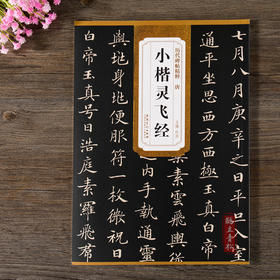 历代碑帖精粹 唐
小楷灵飞经
七月八月庚辛之日平旦入室
通平坐思西方極
乘素靈飛輿
之内手執通靈
輿地身地便服符一枚微祝曰
白帝玉真号曰浩庭素羅飛羣